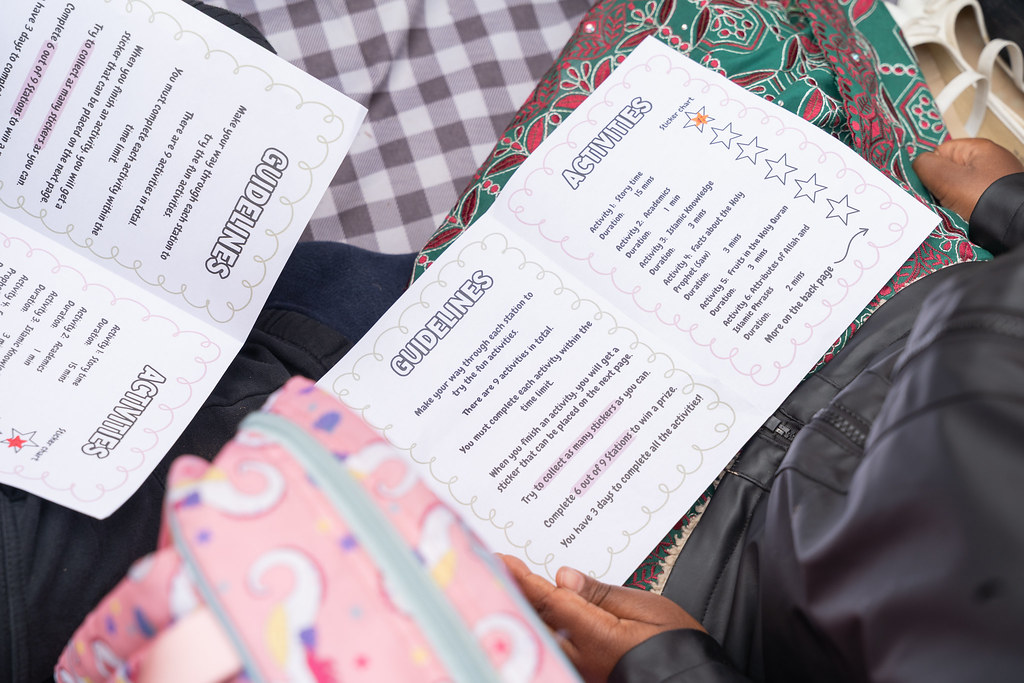 GUIDELINES
Make your way through each station to
try the fun activities.
There are 9 activities in total.
You must complete each activity within the
time limit.
When you finish an activity, you will get a
sticker that can be placed on the next page.
Try to collect as many stickers as you can.
Complete 6 out of 9 Stations to win a prize.
You have 3 days to complete all the activities!
ACTIVITIES
Sticker chart
Activity 1: Story time
Duration: 15 mins
Activity 2: Academics
Duration: 1 min
Activity 3: Islamic Knowledge
Duration: 3 mins
Activity 4: Facts about the Holy
Prophet (Saw)
Duration: 3 mins
Activity 5: Fruits in the Holy Quran
Duration: 3 mins
Activity 6: Attributes of Allah and
Islamic Phrases
Duration: 2 mins
More on the back page
GUIDELINES
Make your way through each station to
try the fun activities.
There are 9 activities in total.
You must complete each activity within the
time limit.
When you finish an activity, you will get a
sticker that can be placed on the next page
Try to collect as many stickers as you can.
Complete 6 out of 9 Stations to win a
have 3 days to
ACTIVITIES
Sticker chart
Activity 1: Story time
Duration: 15 mins
Activity 2: Academics
Duration: 1 min
Activity 3: Islamic
Duration: 3
Activity 4: